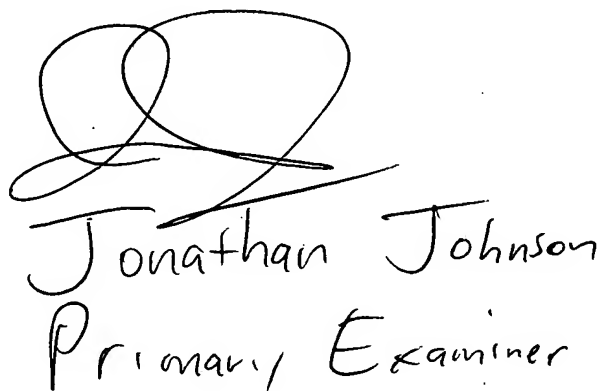 Jonathan Johnson
Primary Examiner